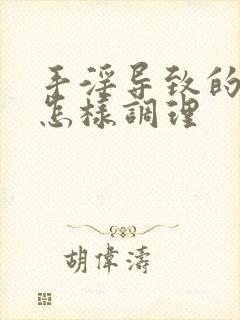 手淫导致的
怎樣調理
胡偉濤